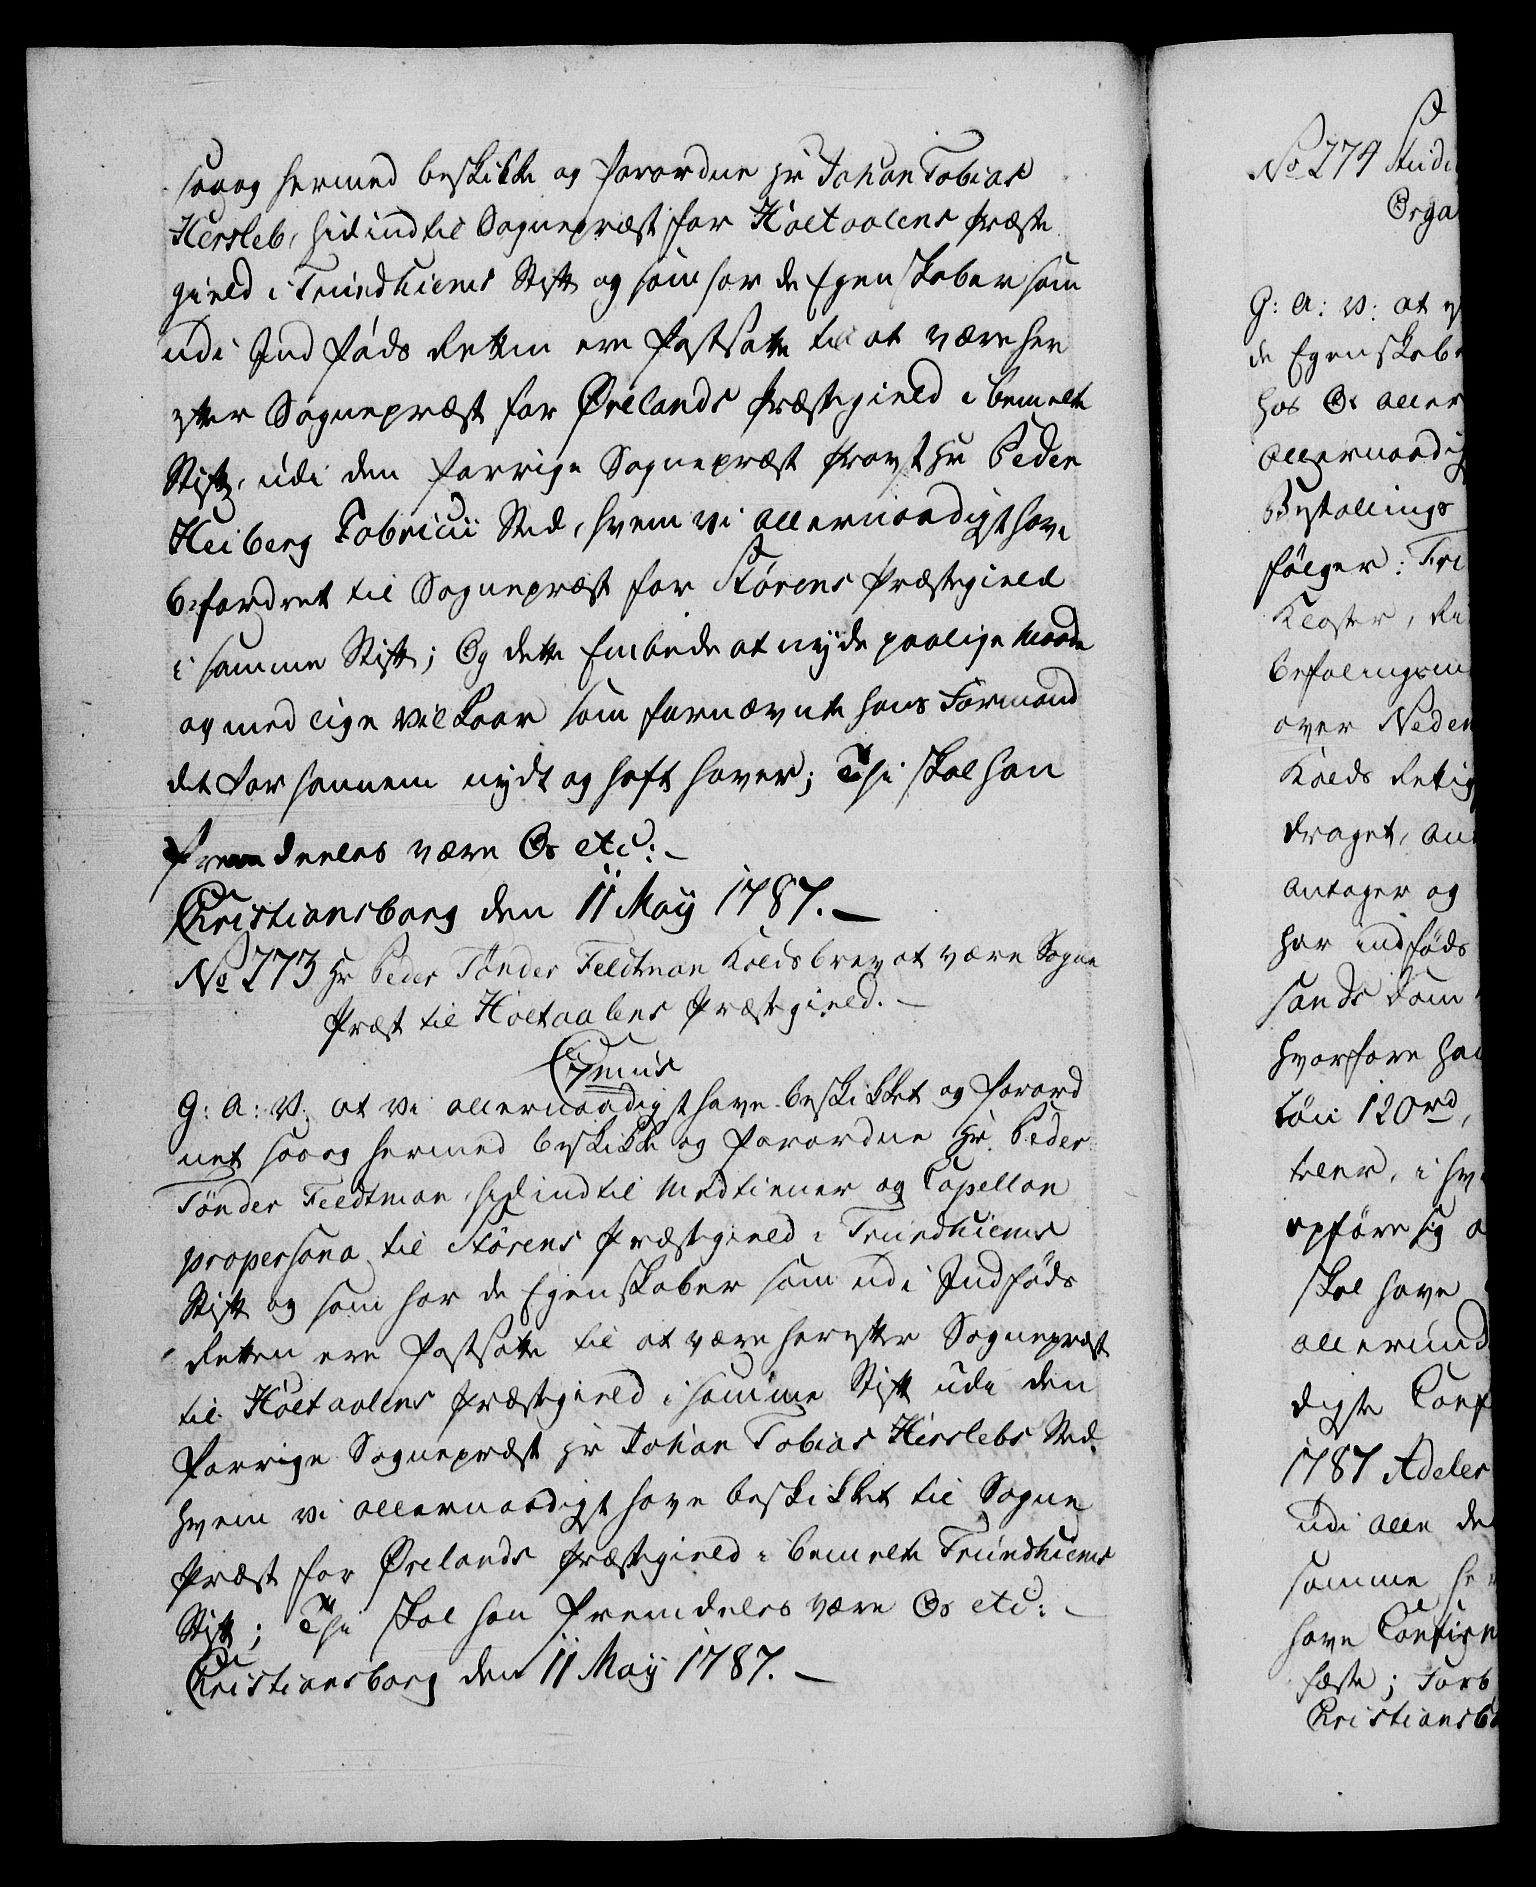 saaog hermed beskikke og forordne Hr Johan Tobias
Hersleb, hidindtil Sognepræst for Holtaalens Præste
gield i Trundhiems Stift og som har de Egenskaber som
udi Indføds Retten ere fastsatte til at være her
efter Sognepræst for Ørelands Præstegield i bemelte
Stift, udi den forrige Sognepræst Provst Hr Peder
Heiberg Fabricii Sted, hvem vi allernaadigst have
befordret til Sognepræst for Størens Præstegield
i samme Stift; Og dette Embede at nyde paalige Maade
og med lige Vilkaar som fornævnte hans Formand
det for hannem nydt og haft haver; Thi skal han
fremdeeles være Os etc:
Christiansborg den 11 May 1787.
No 273 Hr Peder Tønder Feldtman Kaldsbrev at være Sogne
Præst til Holtaalens Præstegield.
G: A: V: at vi allernaadigst have beskikket og forord
net saaog hermed beskikke og forordne Hr. Peder
Tønder Feldtman, hidindtil Medtiener og Capellan
propersona til Størens Præstegield i Trundhiems
Stift og som har de Egenskaber som udi Indføds
Retten ere fastsatte til at være herefter Sognepræst
til Holtaalens Præstegield i samme Stift udi den
forrige Sognepræst Hr Johan Tobias Herslebs Sted
hvem vi allernaadigst have beskikket til Sogne
Præst for Ørelands Præstegield i bemelte Trundhiems
Stift; Thi skal han fremdeles være Os etc:
Christiansborg den 11 May 1787.
No 274
G: A: V: at
de Egenskab
hos Os aller
allernaadig
Bestallings
følger: Fri
Kloster,
Befalingsm
over Neden
Kalds Retig
draget,
antager og
har indføds
hvorfore ha
Løn 120 rd,
opføre sig
skal have
allerund
digste Conf
1787 Adeler
udi alle de
samme he
have Confirm
fæste; Forb
Christiansb